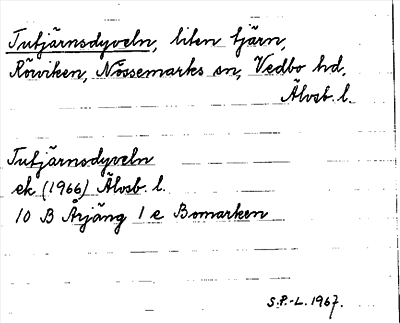 Tutjärnsdyveln, liten tjärn,
Röviken, Nössemarks sn, Vedbo hd,
Älvsb. l.
Tutjärnsdyveln
ek (1966) Älvsb. l.
10 B Årjäng 1 e Bomarken
S.P.-L. 1967.